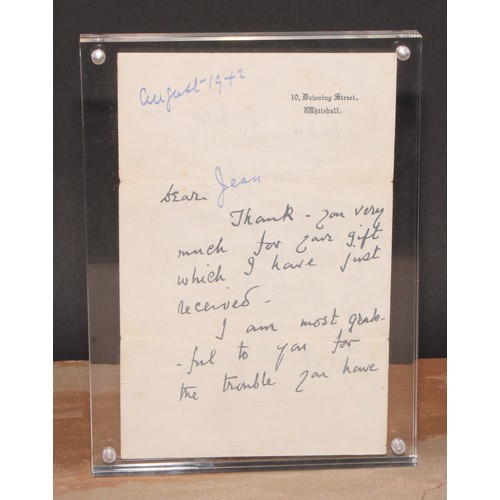 August-1942
10, Downing Street,
Whitehall.
Dear Jean
Thank-you very
much for your gift
which I have just
received-
I am most grate-
-ful to you for
the trouble you have